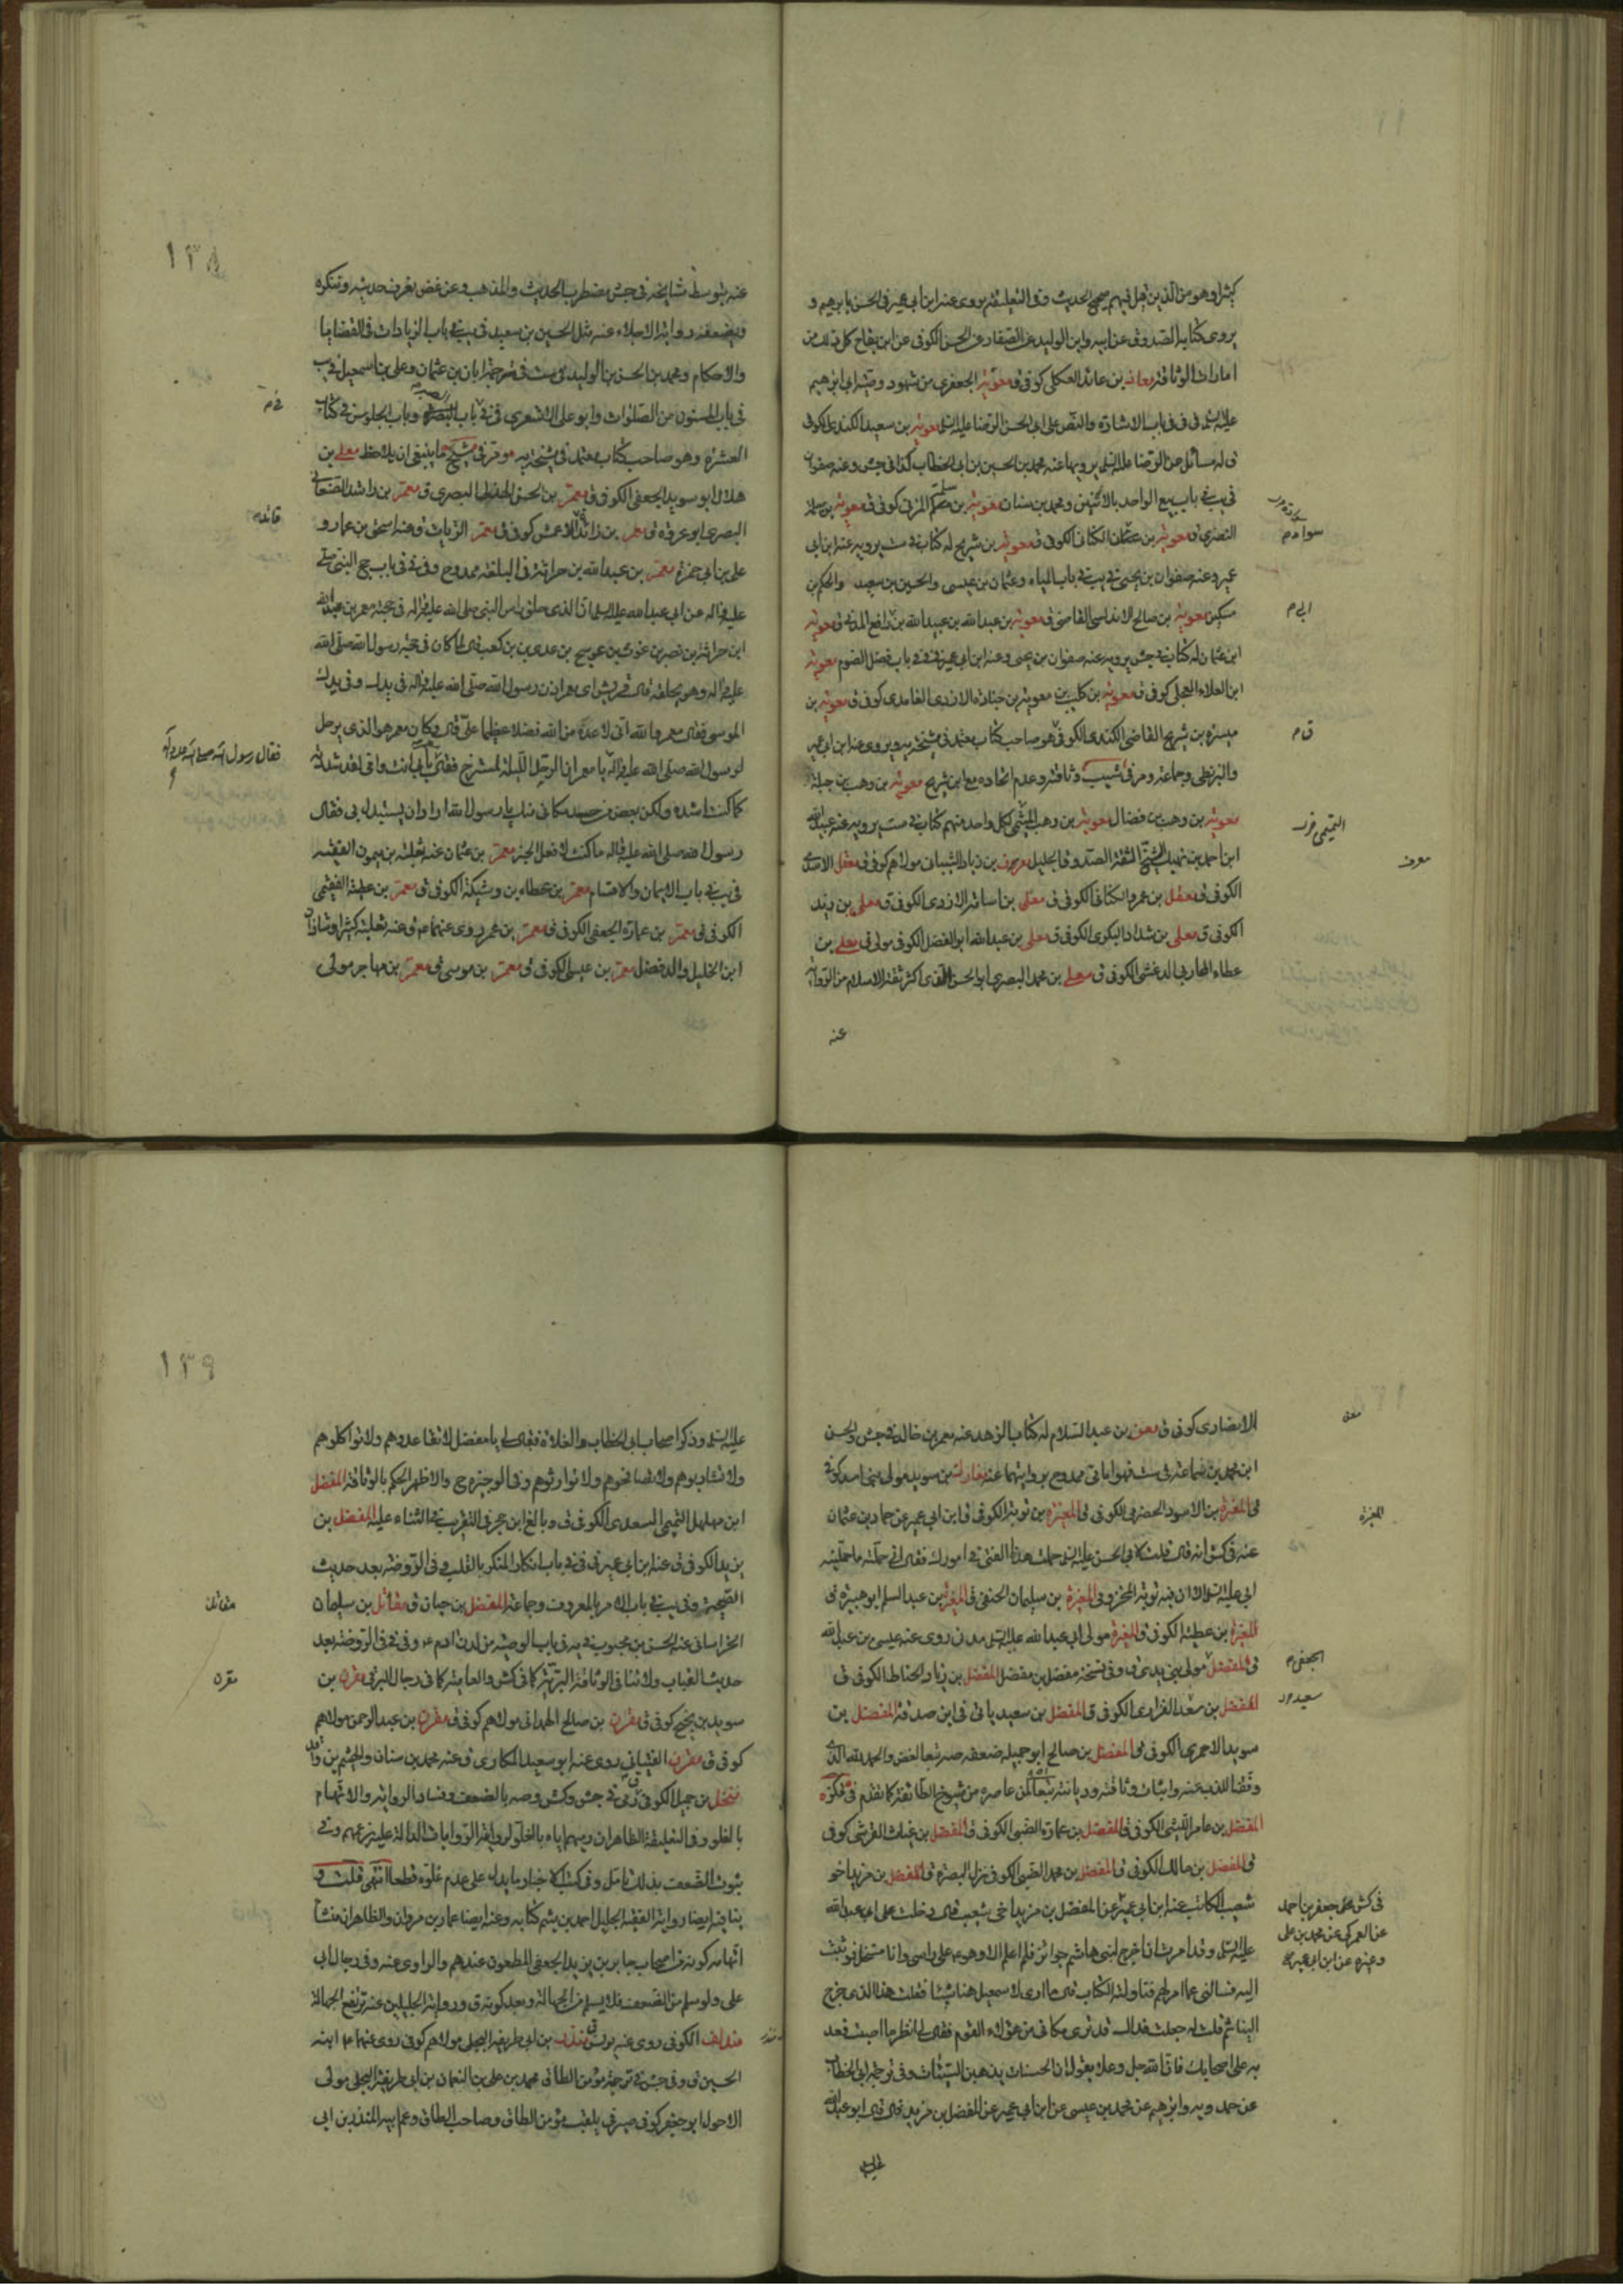 كثيرا وهو من الذين قيل فيهم صحيح الحديث وفى التعليقة يروى عنه ابن ابى عمير فى الحسن بابرهيم و
يروى كتابه الصدوق عن ابيه وابن الوليد عن الصفار عن الحسن الكوفى عن ابن بقاح كل ذلك من
امارات الوثاقة معاذ بن عائذ العكلى كوفى ق معوية الجعفرى من شهود وصية ابى ابرهيم
عليه السلم فى باب الاشارة والنص على ابى الحسن الرضا عليه السلم معوية بن سعيد الكندى الكوفى
ق له مسائل عن الرضا عليه السلم يرويها عنه محمد بن الحسين بن ابى الخطاب كذا فى جش وعنه صفوان
فى باب بيع الواحد بالاثنين ومحمد بن سنان معوية بن المزنى كوفى ق معوية بن سلمة
النصرى ق معوية بن عثمان الكنانى الكوفى ق معوية بن شريح له كتاب ست يرويه عنه ابن ابى
عمير وعنه صفوان بن يحيى فى باب المياه وعثمان بن عيسى والحسين بن سعيد والحكم بن
مسكين معوية بن صالح الاندلسى القاضى ق معوية بن عبد الله بن عبيد الله بن ابى رافع المدنى ق معوية
ابن عثمان له كتاب جش يرويه عنه صفوان بن يحيى وعنه ابن ابى عمير فى باب فضل الصوم معوية
ابن العلاء العجلى كوفى ق معوية بن كليب بن معوية بن جنادة الازدى الغامدى كوفى ق معوية بن
ميسرة بن شريح القاضى الكندى الكوفى ق هو صاحب كتاب معتمد فى مشيخة يه ويروى عنه ابن ابى عمير
والبزنطى وجماعة ومر فى شبيب وثاقته وعدم اتحاده مع ابن شريح معوية بن وهب بن جبلة
معوية بن وهب بن فضال معوية بن وهب الميثمى لكل واحد منهم كتاب ست يرويه عنه عبيد الله
ابن احمد بن نهيك الشيخ الثقة الصدوق الجليل معروف بن زياد الشيبانى مولاهم كوفى ق معقل الاسدى
الكوفى ق معقل بن عمرو الكنانى الكوفى ق معلى بن اسامة الازدى الكوفى ق معلى بن زيد
الكوفى ق معلى بن شداد البكرى الكوفى ق معلى بن عبد الله ابو الفضل الكوفى مولى ق معلى بن
عطاء المحاربى الدغشى الكوفى ق معلى بن محمد البصرى ابو الحسن اكثر ثقة الاسلام من الرواية
عنه
سواد م
ابى م
ق م
التميمى
معرف
١٣٨
عنه بتوسط مشايخه فى جش مضطرب الحديث والمذهب وعن غض يعرف حديثه وتنكره
ويضعفه رواية الاجلاء عنه مثل الحسين بن سعيد فى باب الزيادات فى القضايا
والاحكام ومحمد بن الحسن بن الوليد ست فى ترجمة ابان بن عثمان وعلى بن اسمعيل
فى باب المسنون من الصلوات وابو على الاشعرى فى باب وباب الجلوس فى كتاب
العشرة وهو صاحب كتاب معتمد فى مشيخة يه ومر فى ما ينبغى ان يلاحظ معلى بن
هلال ابو سويد الجعفى الكوفى ق معمر بن الحسن البصرى ق معمر بن راشد الصنعانى
البصرى ابو عروة ق معمر بن زائدة الاعمش كوفى ق معمر الزيات ق عنه اسحق بن عمار و
على بن ابى حمزة معمر بن عبد الله بن حراثة فى البلغة ممدوح وفى باب حج النبى صلى
عليه واله عن ابى عبد الله عليه السلم ان الذى حلق راس النبى صلى الله عليه واله فى حجته معمر بن عبد الله
ابن حراثة بن نصر بن عوف بن عويج بن عدى بن كعب قال ولما كان فى حجة رسول الله صلى الله
عليه واله وهو يحلقه قالت قريش اى معمر اذن رسول الله صلى الله عليه واله فى يدك وفى يدك
الموسى فقال معمر والله انى لاعده من الله فضلا عظيما على قال وكان معمر هو الذى يرحل
لرسول الله صلى الله عليه واله يا معمر ان الرحل الليلة لمسترخ فقال بابى انت وامى لقد شددته
كما كنت اشده ولكن بعض من حسد مكانى منك يا رسول الله اراد ان يستبدل بى فقال
رسول الله صلى الله عليه واله ما كنت لافعل الخبر معمر بن عثمان عنه ثعلبة بن ميمون الفقيه
فى باب الايمان والاقسام معمر بن عطاء بن وشيكة الكوفى ق معمر بن عطية الفقيمى
الكوفى ق معمر بن عمارة الجعفى الكوفى ق معمر بن عمر روى عنهما ع ق عنه ثعلبة كثيرا وشاذان
ابن الخليل والد فضل معمر بن عيسى الكوفى ق معمر بن موسى ق معمر بن مهاجر مولى
فقال رسول الله صلى الله عليه واله
الانصارى كوفى ق معن بن عبد السلام له كتاب الزهد عنه معمر بن خالد جش والحسن
ابن محمد بن سماعة ست فهو امامى ممدوح بروايتهما عنه مغارك بن سويد مولى بنى اسد كوفى
ق المغيرة بن الاسود الحضرمى الكوفى ق المغيرة بن توبة الكوفى ق ابن ابى عمير عن حماد بن عثمان
عنه فى كش انه قال قلت لابى الحسن عليه السلم حملت هذا الفتى فى امورك فقال انى حملته ما حملنيه
ابى عليه السلم ان فيه توبة المخزومى المغيرة بن سليمان الحنفى ق المغيرة بن عبد السلم ابو هبيرة ق
المغيرة بن عطية الكوفى ق المغيرة مولى ابى عبد الله عليه السلم مدنى روى عنه عيسى بن عبد الله
ق المفضل مولى بنى يدى ق وفى نسخة مفضل بن مفضل المفضل بن زياد الحناط الكوفى ق
المفضل بن سعد الفزارى الكوفى ق المفضل بن سعيد ياتى فى ابن صدقة المفضل بن
سويد الاحمرى الكوفى ق المفضل بن صالح ابو جميلة ضعفه صه تبعا لغض والحمد لله الذى
وفقنا للذب عنه واثبات وثاقته وديانته تبعا لمن عاصره من شيوخ الطائفة كما تقدم فى
المفضل بن عامر الليثى الكوفى ق المفضل بن عمارة الضبى الكوفى ق المفضل بن غياث القرشى كوفى
ق المفضل بن مالك الكوفى ق المفضل بن محمد الضبى الكوفى نزل البصرة ق المفضل بن مزيد اخو
شعيب الكاتب عنه ابن ابى عمير عن المفضل بن مزيد اخى شعيب قال دخلت على ابى عبد الله
عليه السلم وقد امرت ان اخرج لبنى هاشم جوائز فلم اعلم الا وهو على راسى وانا مستخلى فوثبت
اليه فسالنى عما امر لهم فناولته الكتاب قال ما ارى لاسمعيل هنا شيئا فقلت هذا الذى خرج
الينا ثم قلت له جعلت فداك قد ترى مكانى من هؤلاء القوم فقال لى انظر ما اصبت فعد
به على اصحابك فان الله جل وعلا يقول ان الحسنات يذهبن السيئات وفى ترجمة ابى الخطاب
عن حمدويه وابرهيم عن محمد بن عيسى عن ابن ابى عمير عن المفضل بن مزيد قال قال ابو عبد الله
عليه
معن
المغيرة
الجعفى م
سعيد
فى كش جعفر بن احمد
عن العمركى عن محمد بن على
وغيره عن ابن ابى عمير
١٣٩
عليه السلم وذكر اصحاب ابى الخطاب والغلاة فقال لى يا مفضل لا تقاعدوهم ولا تواكلوهم
ولا تشاربوهم ولا تصافحوهم ولا توارثوهم وفى الوجيزة ح والاظهر الحكم بالوثاقة المفضل
ابن مهلهل التميمى السعدى الكوفى ق وبالغ ابن حجر فى التقريب فى الثناء عليه المفضل بن
يزيد الكوفى ق عنه ابن ابى عمير فى باب انكار المنكر بالقلب وفى الروضة بعد حديث
الصيحة وفى باب الامر بالمعروف وجماعة المفضل بن حيان ق مقاتل بن سليمان
الخراسانى عنه الحسن بن محبوب فى يه فى باب الوصية من لدن ادم ع وفى الروضة بعد
حديث الغياب ولا تنافى الوثاقة البترية كما فى كش والعامية كما فى رجال البرقى مقرن بن
سويد بن نجيح كوفى ق مقرن بن صالح الهمدانى مولاهم كوفى ق مقرن بن عبد الرحمن مولاهم
كوفى ق مقرن الفتيانى روى عنه ابو سعيد المكارى ق عنه محمد بن سنان والهيثم بن واقد
منخل بن جميل الكوفى ق رمى جش وكش وصه بالضعف وفساد الرواية والاتهام
بالغلو وفى التعليقة الظاهر ان رميهم اياه بالغلو لروايته الروايات الدالة عليه بزعمهم وفى
ثبوت الضعف بذلك تامل وفى كتب الاخبار ما يدل على عدم غلوه قطعا انتهى قلت و
ينافيه ايضا رواية الفقيه الجليل احمد بن ميثم كتابه وعنه ايضا عمار بن مروان والظاهر ان منشا
اتهامه كونه من اصحاب جابر بن يزيد الجعفى المطعون عندهم والراوى عنه وفى رجال ابى
على ولو سلم من الضعف فلا يسلم من الجهالة وبعد كونه ق ورواية الجليلين عنه ترتفع الجهالة
مندلف الكوفى روى عنه يونس ق منذر بن ابى طريفة البجلى مولاهم كوفى روى عنهما ع ابنه
الحسين ق وفى جش فى ترجمة مؤمن الطاق محمد بن على بن النعمان بن ابى طريفة البجلى مولى
الاحول ابو جعفر كوفى صيرفى يلقب مؤمن الطاق وصاحب الطاق وعم ابيه المنذر بن ابى
مقاتل
مقرن
منذر